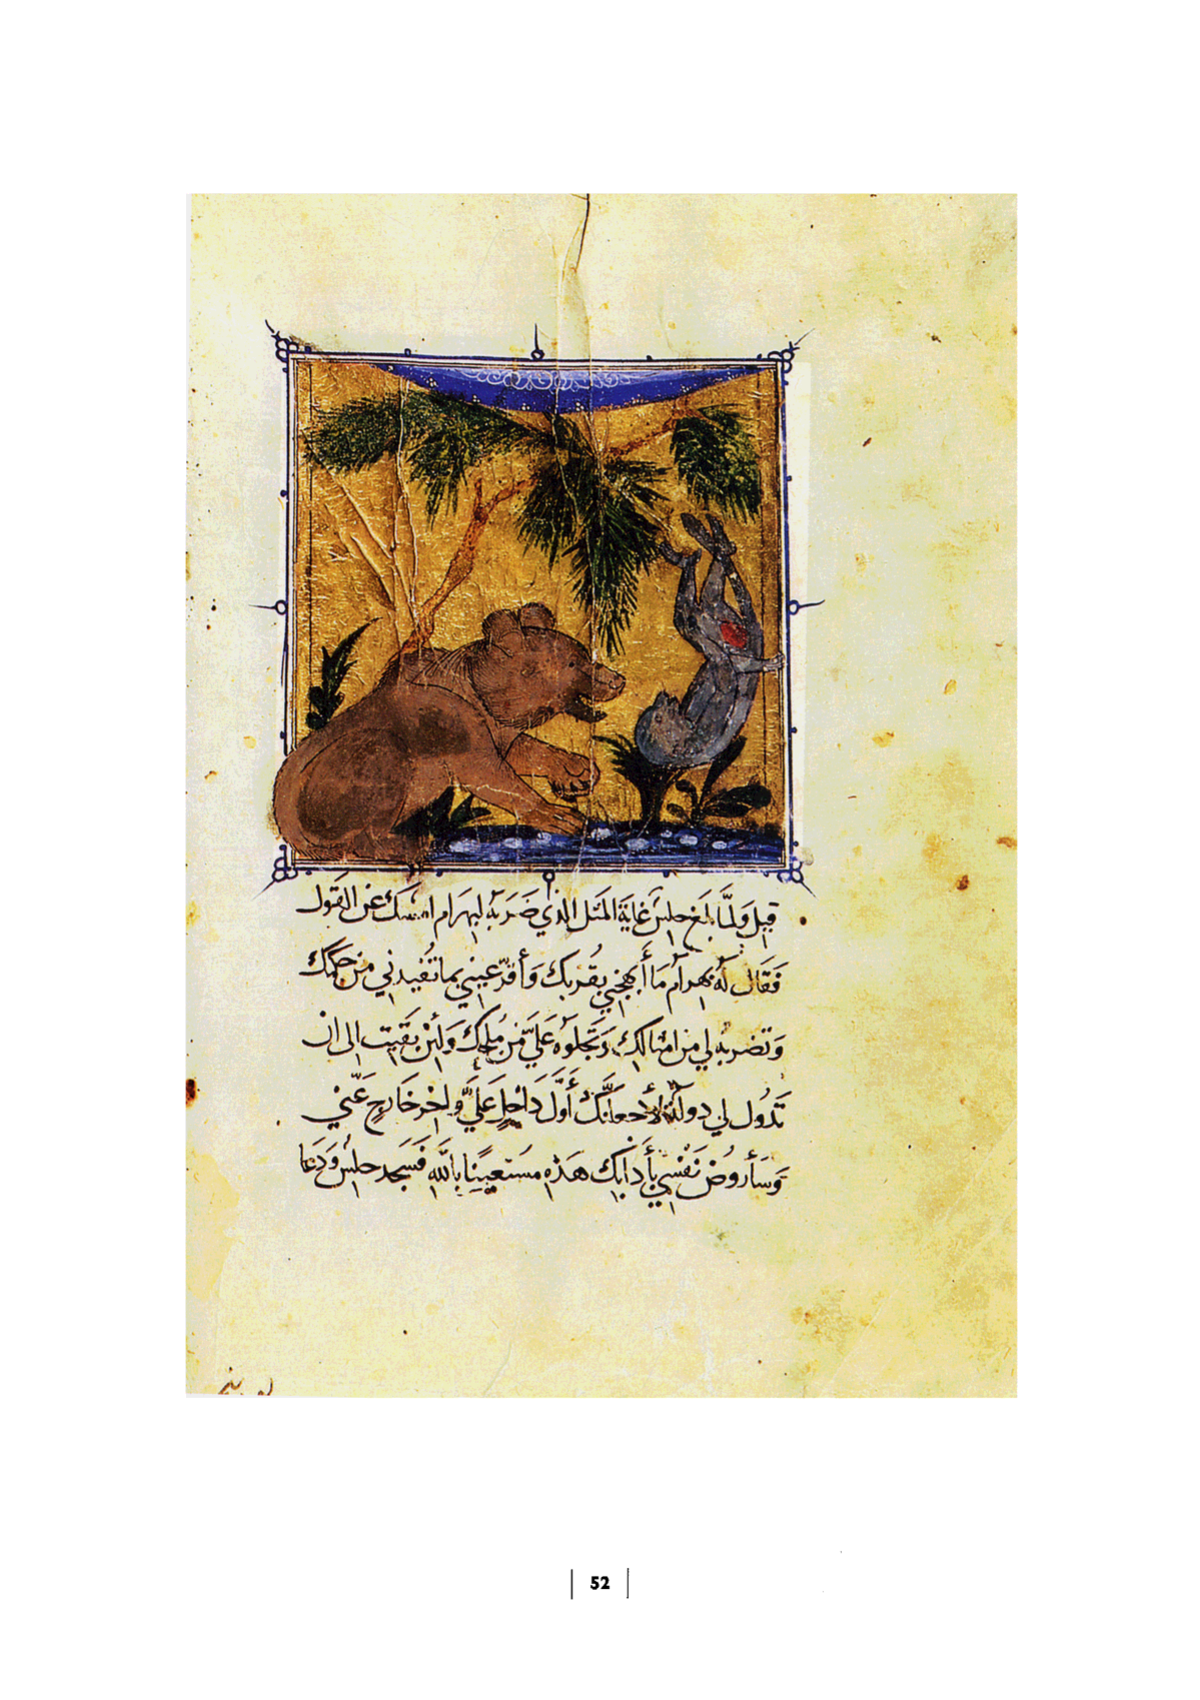 قيل وَلمَّا بلغ حلِيس غايَةَ المَثَل الذي ضَرَبَهُ لبَهرَام امسَك عَن القَول
فَقَال لَهُ بهرَام مَا أَبهَجَني بقُربك وَأَقرَّ عَيني بما تُفيدني من حِكمك
وَتضربهُ لي من امثالك وَتَجلُوهُ عَليَّ من مُلحِكَ وَلَئِنْ بَقَيت الى ان
تَدُول لي دولَة لأَجعلَنَّك أَوَّلَ دَاخِلٍ عَلَيَّ وَاخر خَارج عَنّي
وَسَأَروُضُ نَفْسي بأَدابك هَذِهِ مُستَعيِنًا باللَّهِ فَسَجد حليس وَدَعَا
52